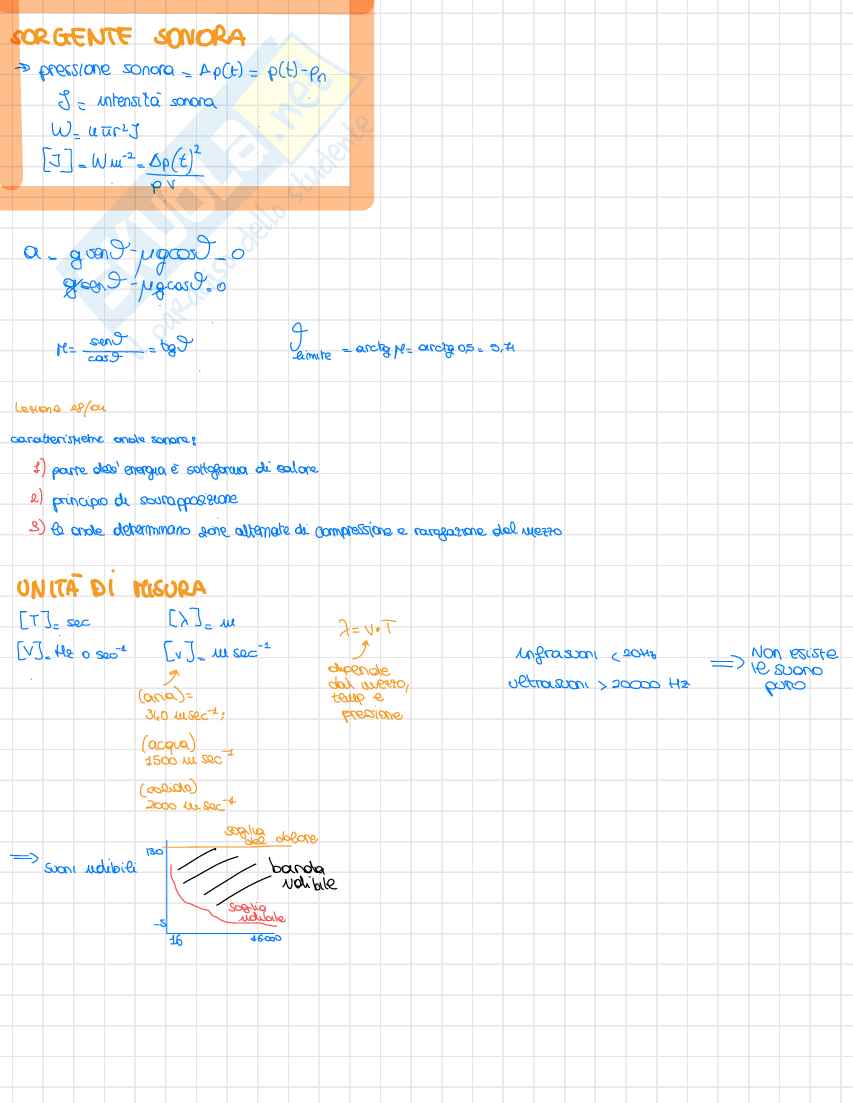 SORGENTE SONORA
→ pressione sonora = Δp(t) = p(t)-pn
J = intensità sonora
W = 4πr²J
[J] = W m⁻² = Δp(t)² / ρv
a = g senϑ - μg cosϑ = 0
g senϑ - μg cosϑ = 0
μ = senϑ / cosϑ = tgϑ
ϑ limite = arctg μ = arctg 0,5 =
Lezione
caratteristiche onde sonore:
1) parte dell'energia è sottoforma di calore
2) principio di sovrapposizione
3) le onde determinano zone alternate di compressione e rarefazione del mezzo
UNITÀ DI MISURA
[T] = sec [λ] = m
[ν] = Hz o sec⁻¹ [v] = m sec⁻¹
λ = v·T
dipende
dal mezzo,
temp e
pressione
(aria) =
340 m sec⁻¹;
(acqua)
1500 m sec⁻¹
(solido)
2000 m sec⁻¹
infrasuoni < 20Hz
ultrasuoni > 20000 Hz
⇒ Non esiste
il suono
puro
⇒ suoni udibili
soglia
del dolore
130
banda
udibile
soglia
udibile
-5
16 16000
SKUOLA.net
il paradiso dello studente